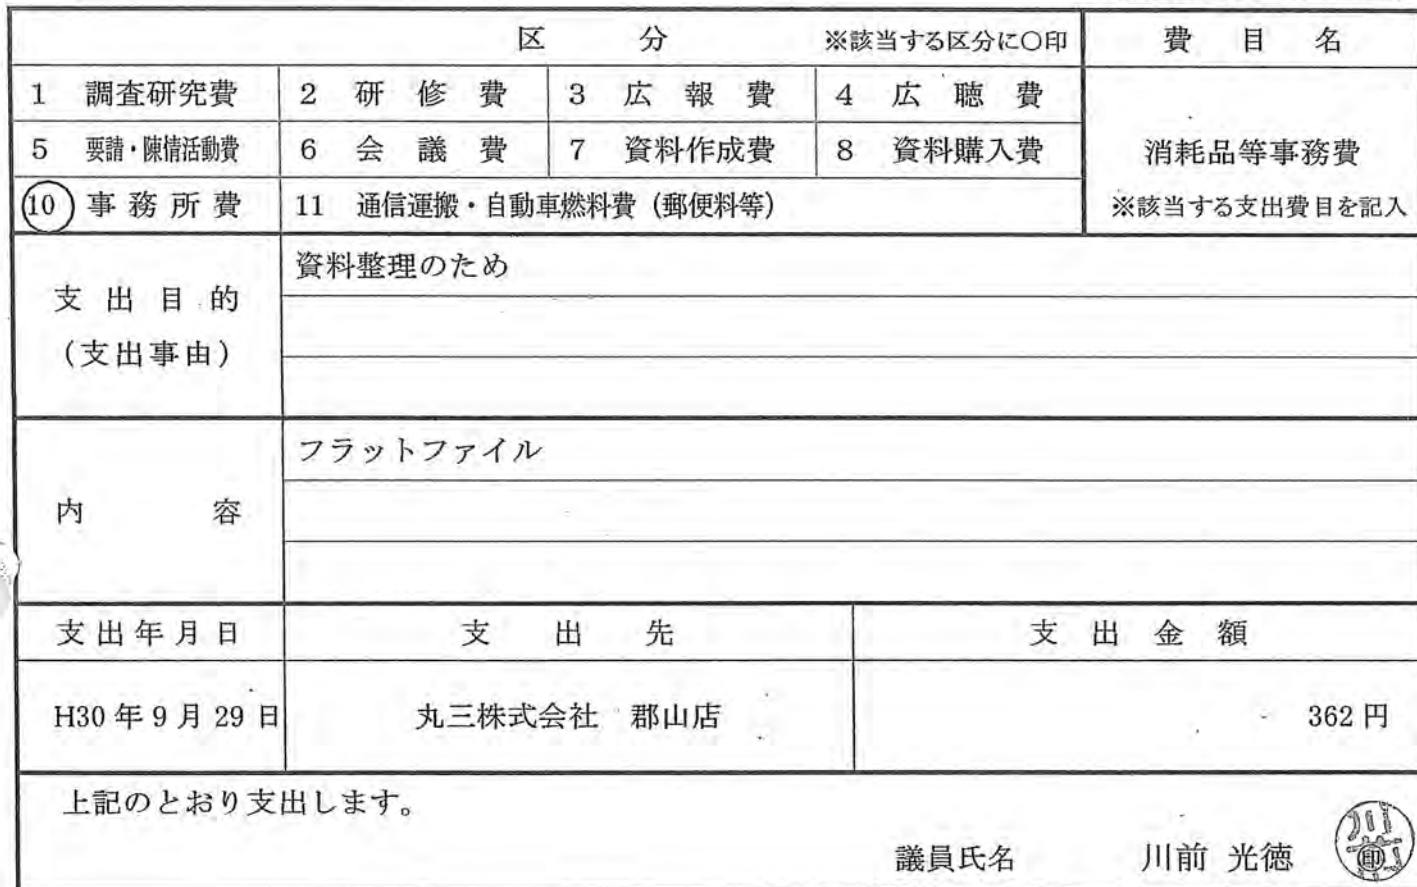 区　分　※該当する区分に〇印　費　目　名
1　調査研究費　2　研　修　費　3　広　報　費　4　広　聴　費
5　要請・陳情活動費　6　会　議　費　7　資料作成費　8　資料購入費　消耗品等事務費
10　事務所費　11　通信運搬・自動車燃料費（郵便料等）　※該当する支出費目を記入
資料整理のため
支出目的
（支出事由）
フラットファイル
内　容
支出年月日　支　出　先　支　出　金　額
H30年9月29日　丸三株式会社　郡山店　362円
上記のとおり支出します。
議員氏名　川前 光徳　川前 印